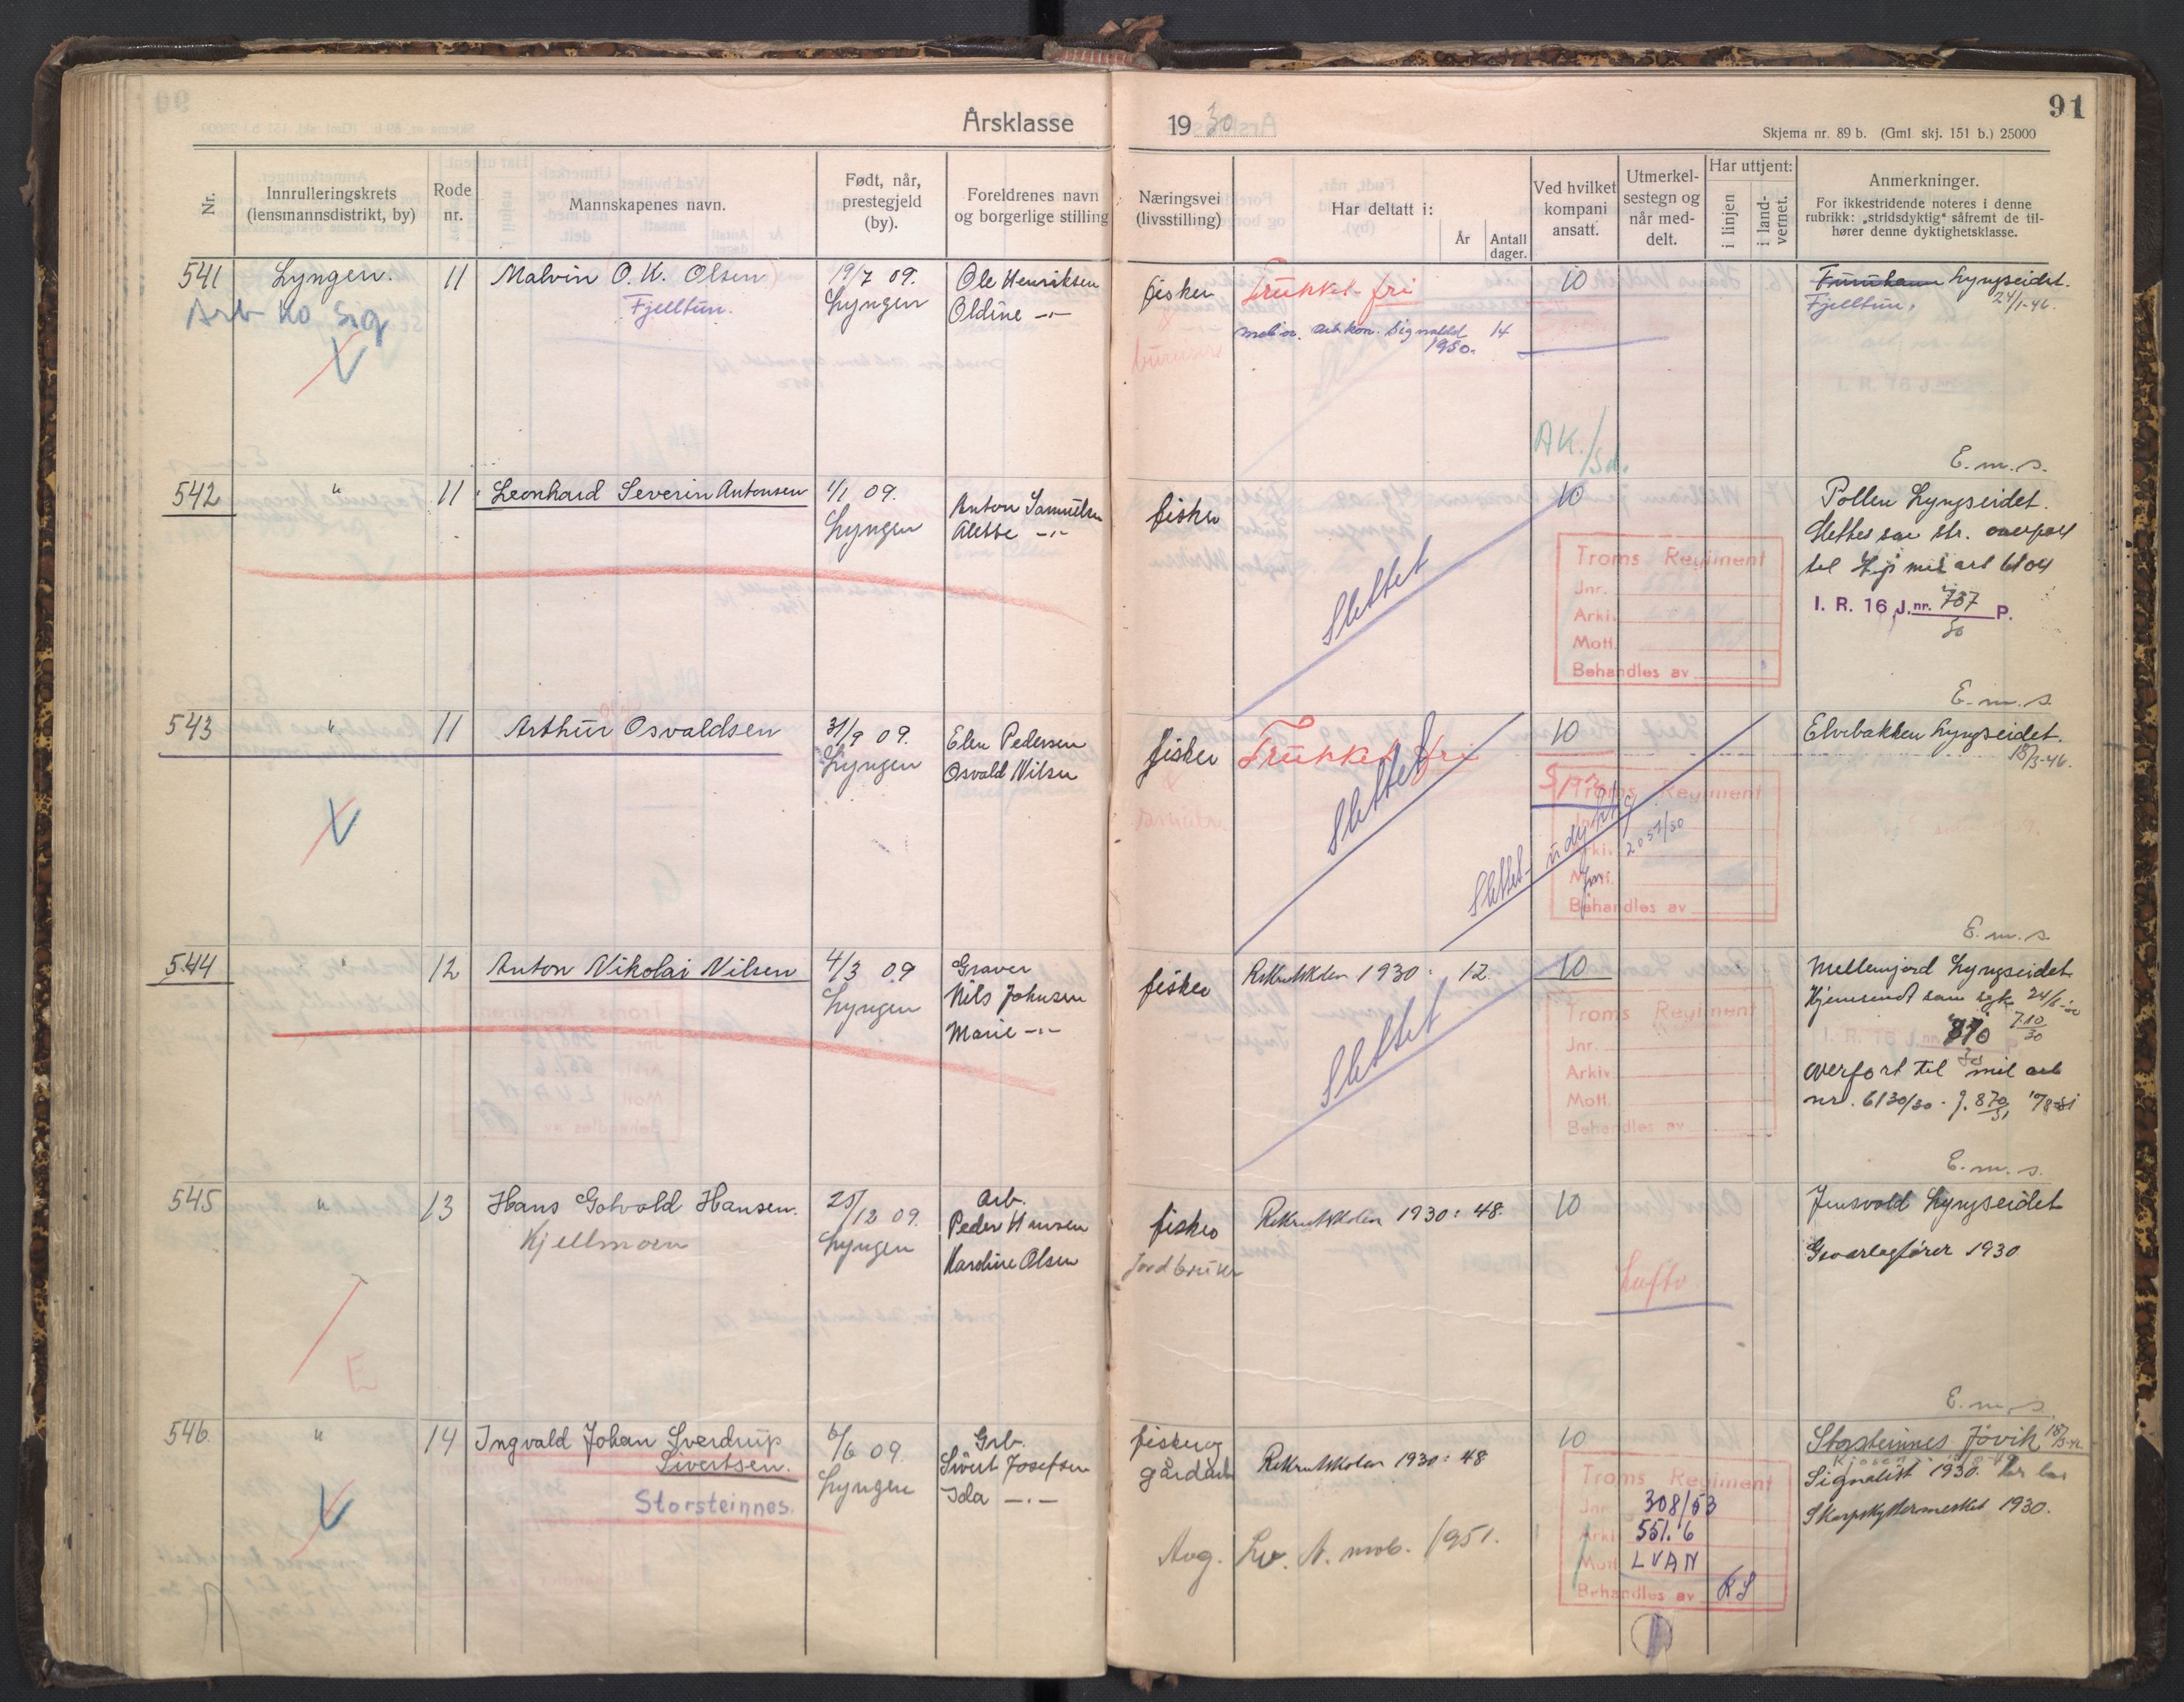 91
Årsklasse 1930
Skjema nr. 89 b. (Gml. skj. 151 b.) 25000
Nr.
Innrulleringskrets
(lensmannsdistrikt, by)
Rode
nr.
Mannskapenes navn.
Født, når,
prestegjeld
(by).
Foreldrenes navn
og borgerlige stilling
Næringsvei
(livsstilling)
Har deltatt i:
År
Antall
dager.
Ved hvilket
kompani
ansatt.
Utmerkel-
sestegn og
når med-
delt.
Har uttjent:
i linjen
i land-
vernet.
Anmerkninger.
For ikkestridende noteres i denne
rubrikk: „stridsdyktig“ såfremt de til-
hører denne dyktighetsklasse.
541 Lyngen. 11 Malvin O. K. Olsen
Fjelltun.
Arb Ko Sig
V
19/7 09.
Lyngen
Ole Henriksen
Oldine -"-
fisker
Trukket fri
14
1950.
10
Lyngseidet.
24/1-46.
Fjelltun.
AK./Sd.
E. m. s.
542 " 11 Leonhard Severin Antonsen
1/1 09.
Lyngen
Anton Samuelsen
-"-
fisker
Slettet
10
Troms Regiment
Jnr.
Arkiv
Mott.
Behandles av
Pollen Lyngseidet.
Slettes som str. overført
til mil arb 6104
I. R. 16 J.nr. 737 P.
30
E. m. s.
543 " 11 Arthur Osvaldsen
V
31/9 09.
Lyngen
Elen Pedersen
Osvald Nilsen
fisker
Trukket fri
Slettet
10
Slettet - udyktig
Jnr 2051/50
Troms Regiment
Jnr.
Arkiv
Mott.
Behandles av
Elvebakken Lyngseidet.
18/3-46.
E. m. s.
544 " 12 Anton Nikolai Nilsen
4/3 09
Lyngen
Graver
Nils Johnsen
Marie -"-
fisker
Rekrutskolen 1930: 12.
Slettet
10
Troms Regiment
Jnr.
Arkiv
Mott.
Behandles av
Mellemjord Lyngseidet
Hjemsendt som syk 24/6-30
I. R. 16 J.nr. 870
710
30
overført til mil arb
nr. 6130/30 - J. 870/31
E. m. s.
545 " 13 Hans Gotvald Hansen.
Kjellmoen
E
25/12 09.
Lyngen
Arb.
Peder Hansen
Karoline Olsen
fisker
Jordbruker
Rekrutskolen 1930: 48.
10
Luftv
Jensvold Lyngseidet
Geværlagfører 1930
E. m. s.
546. " 14 Ingvald Johan Sverdrup
Sivertsen.
Storsteinnes.
V
6/6 09.
Lyngen
Grb.
Sivert Josefsen
Ida -"-
fisker og
gårdarb
Rekrutskolen 1930: 48
Avg. Lv. A. mob. 1951.
10
Troms Regiment
Jnr 308/53
Arkiv 551.6
Mott LVAN
Behandles av RS
Storsteinnes Jøvik
Signalist 1930.
Skarpskyttermerket 1930.